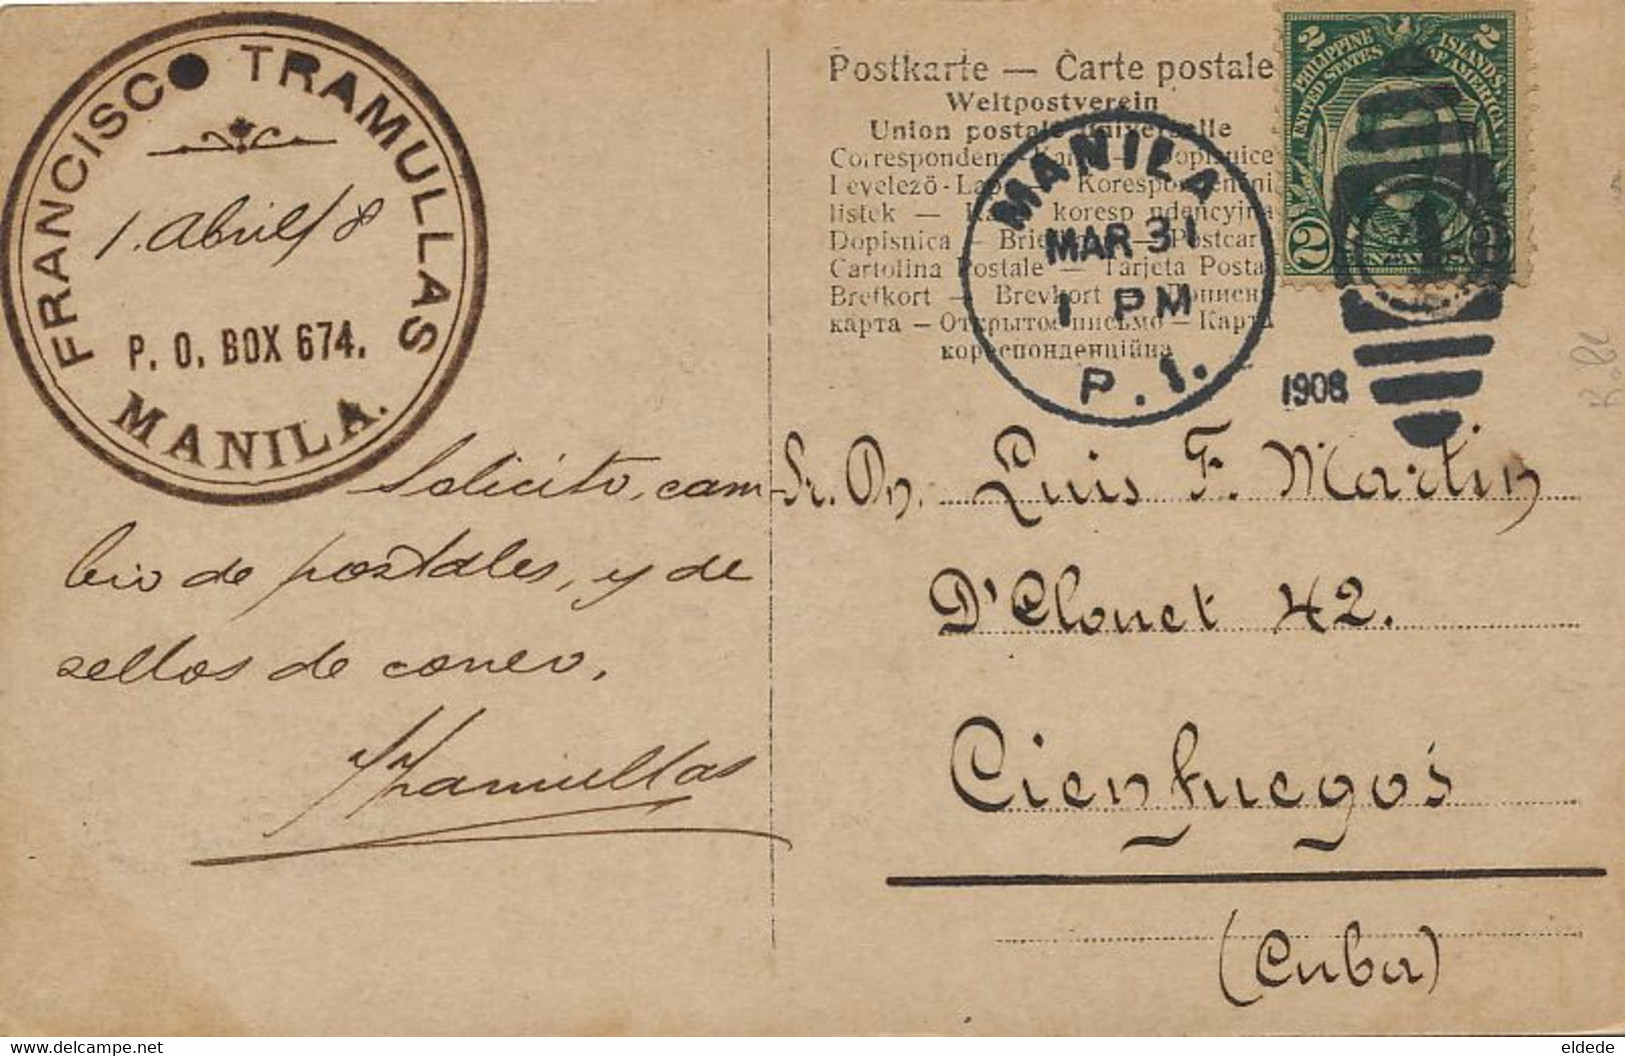 FRANCISCO TRAMULLAS
1. Abril/8
P. O. BOX 674.
MANILA.
Solicito, cam-
bio de postales, y de
sellos de correo.
Tramullas
Postkarte — Carte postale
Weltpostverein
Union postale universelle
Dopisnice
Levelező-
listek —
Dopisnica — Postcard
Cartolina Postale — Tarjeta Postal
Brefkort — Brevkort — Дописна
карта — Открытое письмо — Карта
кореспонденційна
MANILA
MAR 31
1 PM
P. I.
1908
1
2 PHILIPPINE ISLANDS, 2
UNITED STATES OF AMERICA
2 CENTAVOS 2
Sr. Dn. Luis F. Martin
D'Clouet 42.
Cienfuegos
(Cuba)
eldede